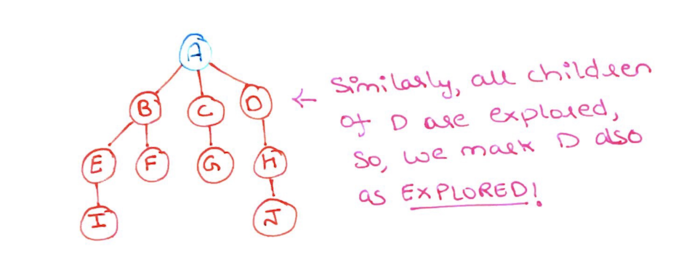 A
B C D
E F G H
I J
← Similarly, all children
of D are explored,
So, we mark D also
as EXPLORED!